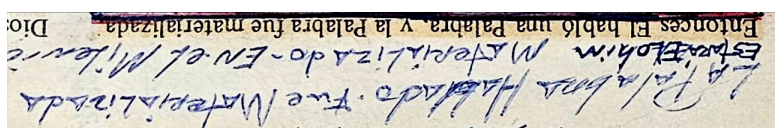 LA Palabra Hablado. Fue Materializada
Estara Elohim Materializado-EN el Milenio
Entonces El habló una Palabra, y la Palabra fue materializada. Dios